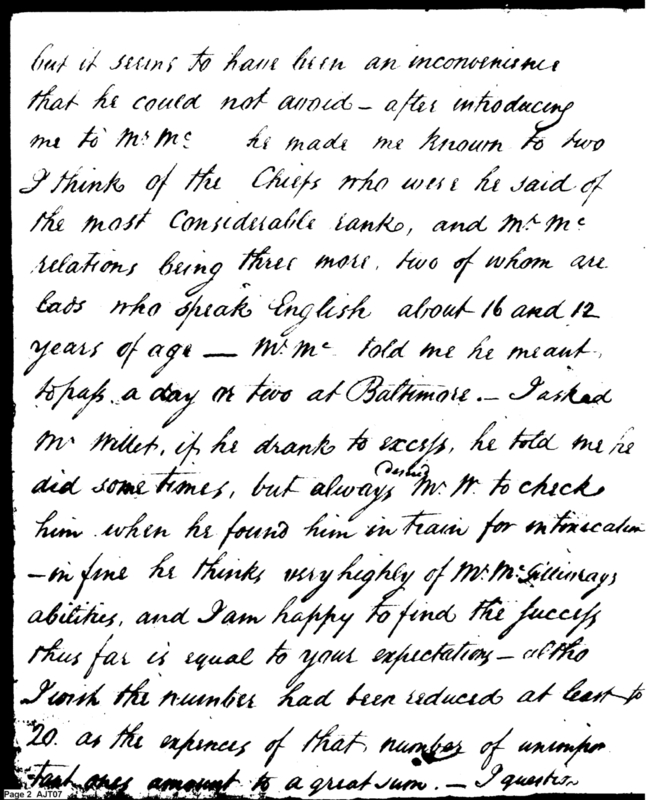 but it seems to have been an inconvenience
that he could not avoid – after introducing
me to Mr. Mc he made me known to two
I think of the Chiefs who were he said of
the most Considerable rank, and Mr. Mc
relations being three more, two of whom are
lads who speak English about 16 and 12
years of age — Mr. Mc told me he meant
to pass a day or two at Baltimore. – I asked
Mr Willet, if he drank to excess, he told me he
did some times, but always desired Mr. W. to check
him when he found him in train for intoxication
– in fine he thinks very highly of Mr. McGillivrays
abilities, and I am happy to find the success
thus far is equal to your expectations – altho
I wish the number had been reduced at least to
20. as the expences of that number of unimpor
tant ones amount to a great sum. – I question
Page 2 AJT07